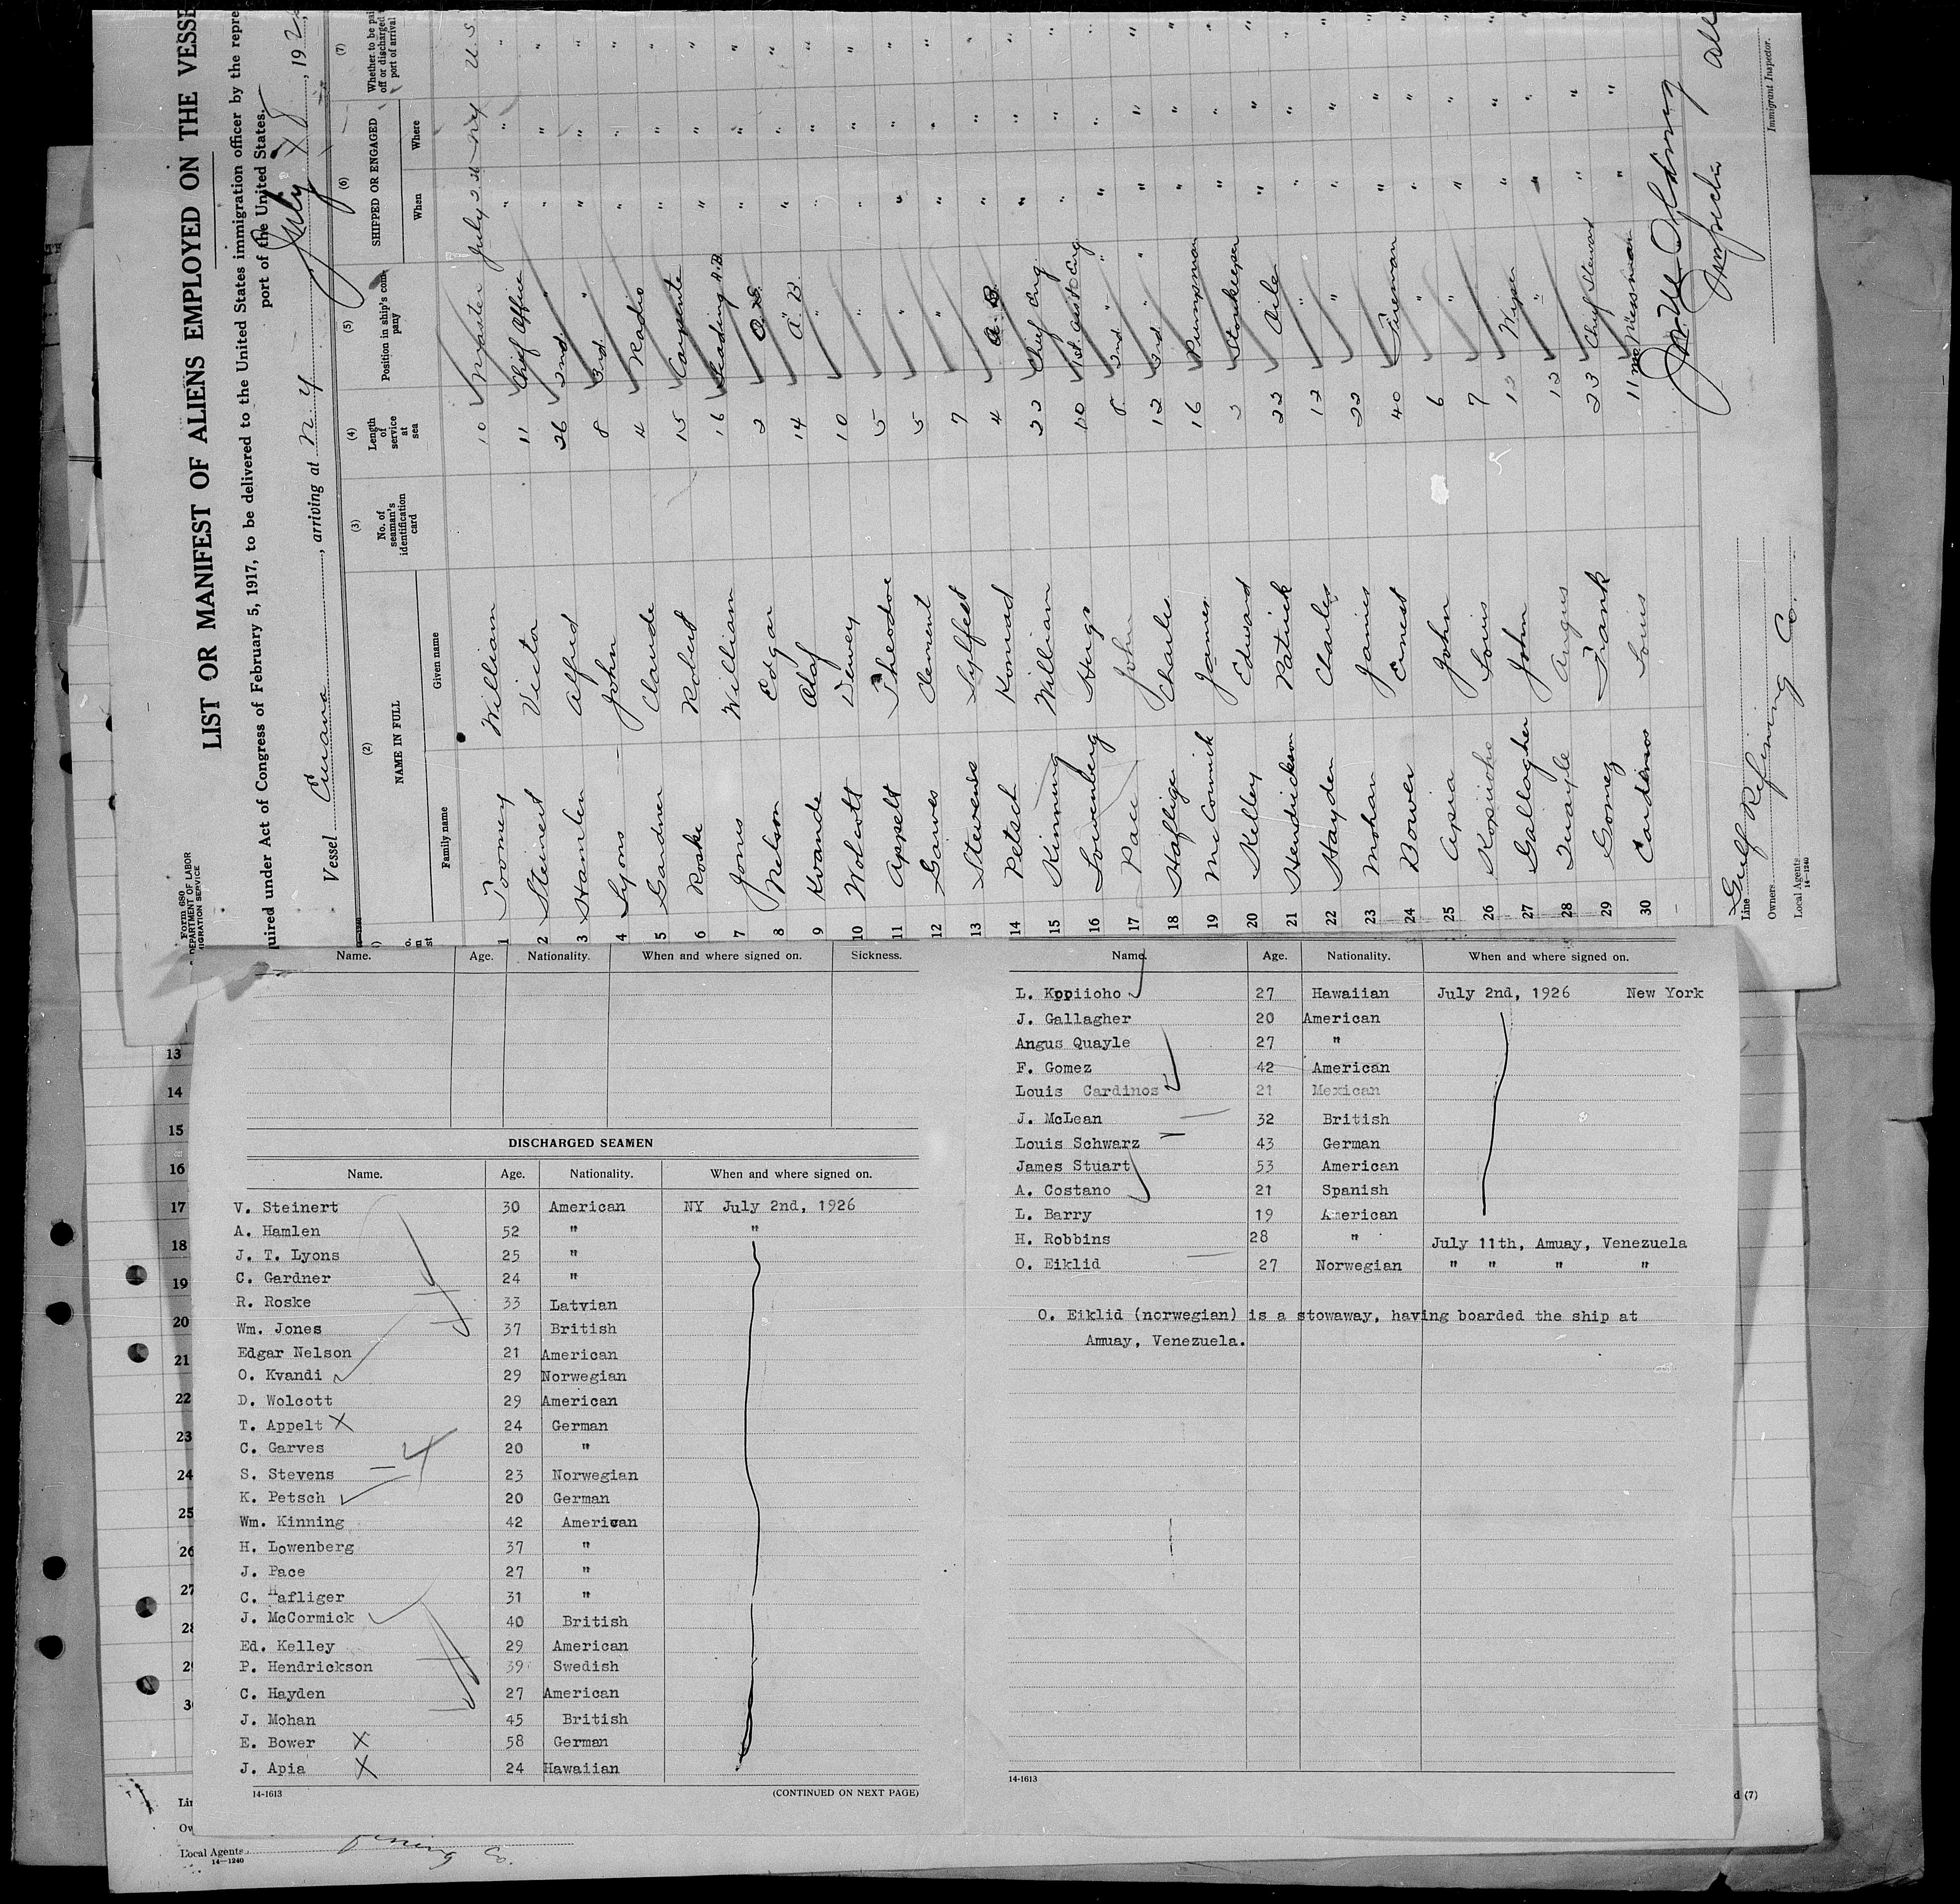 Form 680
DEPARTMENT OF LABOR
MIGRATION SERVICE
LIST OR MANIFEST OF ALIENS EMPLOYED ON THE VESSE
quired under Act of Congress of February 5, 1917, to be delivered to the United States immigration officer by the repre
port of the United States.
Vessel Cuana, arriving at N. Y., July 8, 192
(2) (3) (4) (5) (6) (7)
NAME IN FULL
Family name Given name
No. of seaman's identification card
Length of service at sea
Position in ship's company
SHIPPED OR ENGAGED
When Where
Whether to be paid off or discharged at port of arrival
1 Toomey William 10 Master July 2 26 NY U S
2 Steinert Victor 11 Chief Office " " "
3 Hamlen Alfred 26 2nd. " " " "
4 Lyons John 8 3rd. " " " "
5 Gardner Claude 4 Radio " " "
6 Roske Robert 15 Carpente " " "
7 Jones William 16 Leading A.B. " " "
8 Nelson Edgar 2 O.S. " " "
9 Kvande Olaf 14 A.B. " " "
10 Wolcott Dewey 10 " " " "
11 Appelt Theodor 5 " " " "
12 Garves Clement 5 " " " "
13 Stevens Sylfest 7 " " " "
14 Petsch Konrad 4 A.B. " " "
15 Kinning William 22 Chief Eng. " " "
16 Lowenberg Hugo 20 1st. asst Eng " " "
17 Pace John 8 2nd. " " " " "
18 Hafliger Charles 12 3rd. " " " " "
19 McCormick James 16 Pumpman " " "
20 Kelley Edward 3 Storekeeper " " "
21 Hendrickson Patrick 22 Oile " " "
22 Hayden Charles 12 " " " "
23 Mohan James 22 " " " "
24 Bower Ernest 40 Fireman " " "
25 Apia John 6 " " " "
26 Kopiioho Louis 7 " " " "
27 Gallagher John 12 Wiper " " "
28 Quayle Angus 12 " " " "
29 Gomez Frank 23 Chief Steward " " "
30 Cardinos Louis 11 mo Messman " "
Line Gulf Refining Co.
Owners
Local Agents
14—1240
Inspector
Immigrant Inspector.
Name. Age. Nationality. When and where signed on. Sickness.
DISCHARGED SEAMEN
Name. Age. Nationality. When and where signed on.
V. Steinert 30 American NY July 2nd, 1926
A. Hamlen 52 " "
J. T. Lyons 25 "
C. Gardner 24 "
R. Roske 33 Latvian
Wm. Jones 37 British
Edgar Nelson 21 American
O. Kvandi 29 Norwegian
D. Wolcott 29 American
T. Appelt X 24 German
C. Garves 20 "
S. Stevens 23 Norwegian
K. Petsch 20 German
Wm. Kinning 42 American
H. Lowenberg 37 "
J. Pace 27 "
C. Hafliger 31 "
J. McCormick 40 British
Ed. Kelley 29 American
P. Hendrickson 39 Swedish
C. Hayden 27 American
J. Mohan 45 British
E. Bower X 58 German
J. Apia X 24 Hawaiian
14-1613 (CONTINUED ON NEXT PAGE)
Name. Age. Nationality. When and where signed on.
L. Kppiioho 27 Hawaiian July 2nd, 1926 New York
J. Gallagher 20 American
Angus Quayle 27 "
F. Gomez 42 American
Louis Cardinos 21 Mexican
J. McLean 32 British
Louis Schwarz 43 German
James Stuart 53 American
A. Costano 21 Spanish
L. Barry 19 American
H. Robbins 28 " July 11th, Amuay, Venezuela
O. Eiklid 27 Norwegian " " " "
O. Eiklid (norwegian) is a stowaway, having boarded the ship at
Amuay, Venezuela.
14-1613
13
14
15
16
17
18
19
20
21
22
23
24
25
26
27
28
d (7)
Local Agents
14—1240